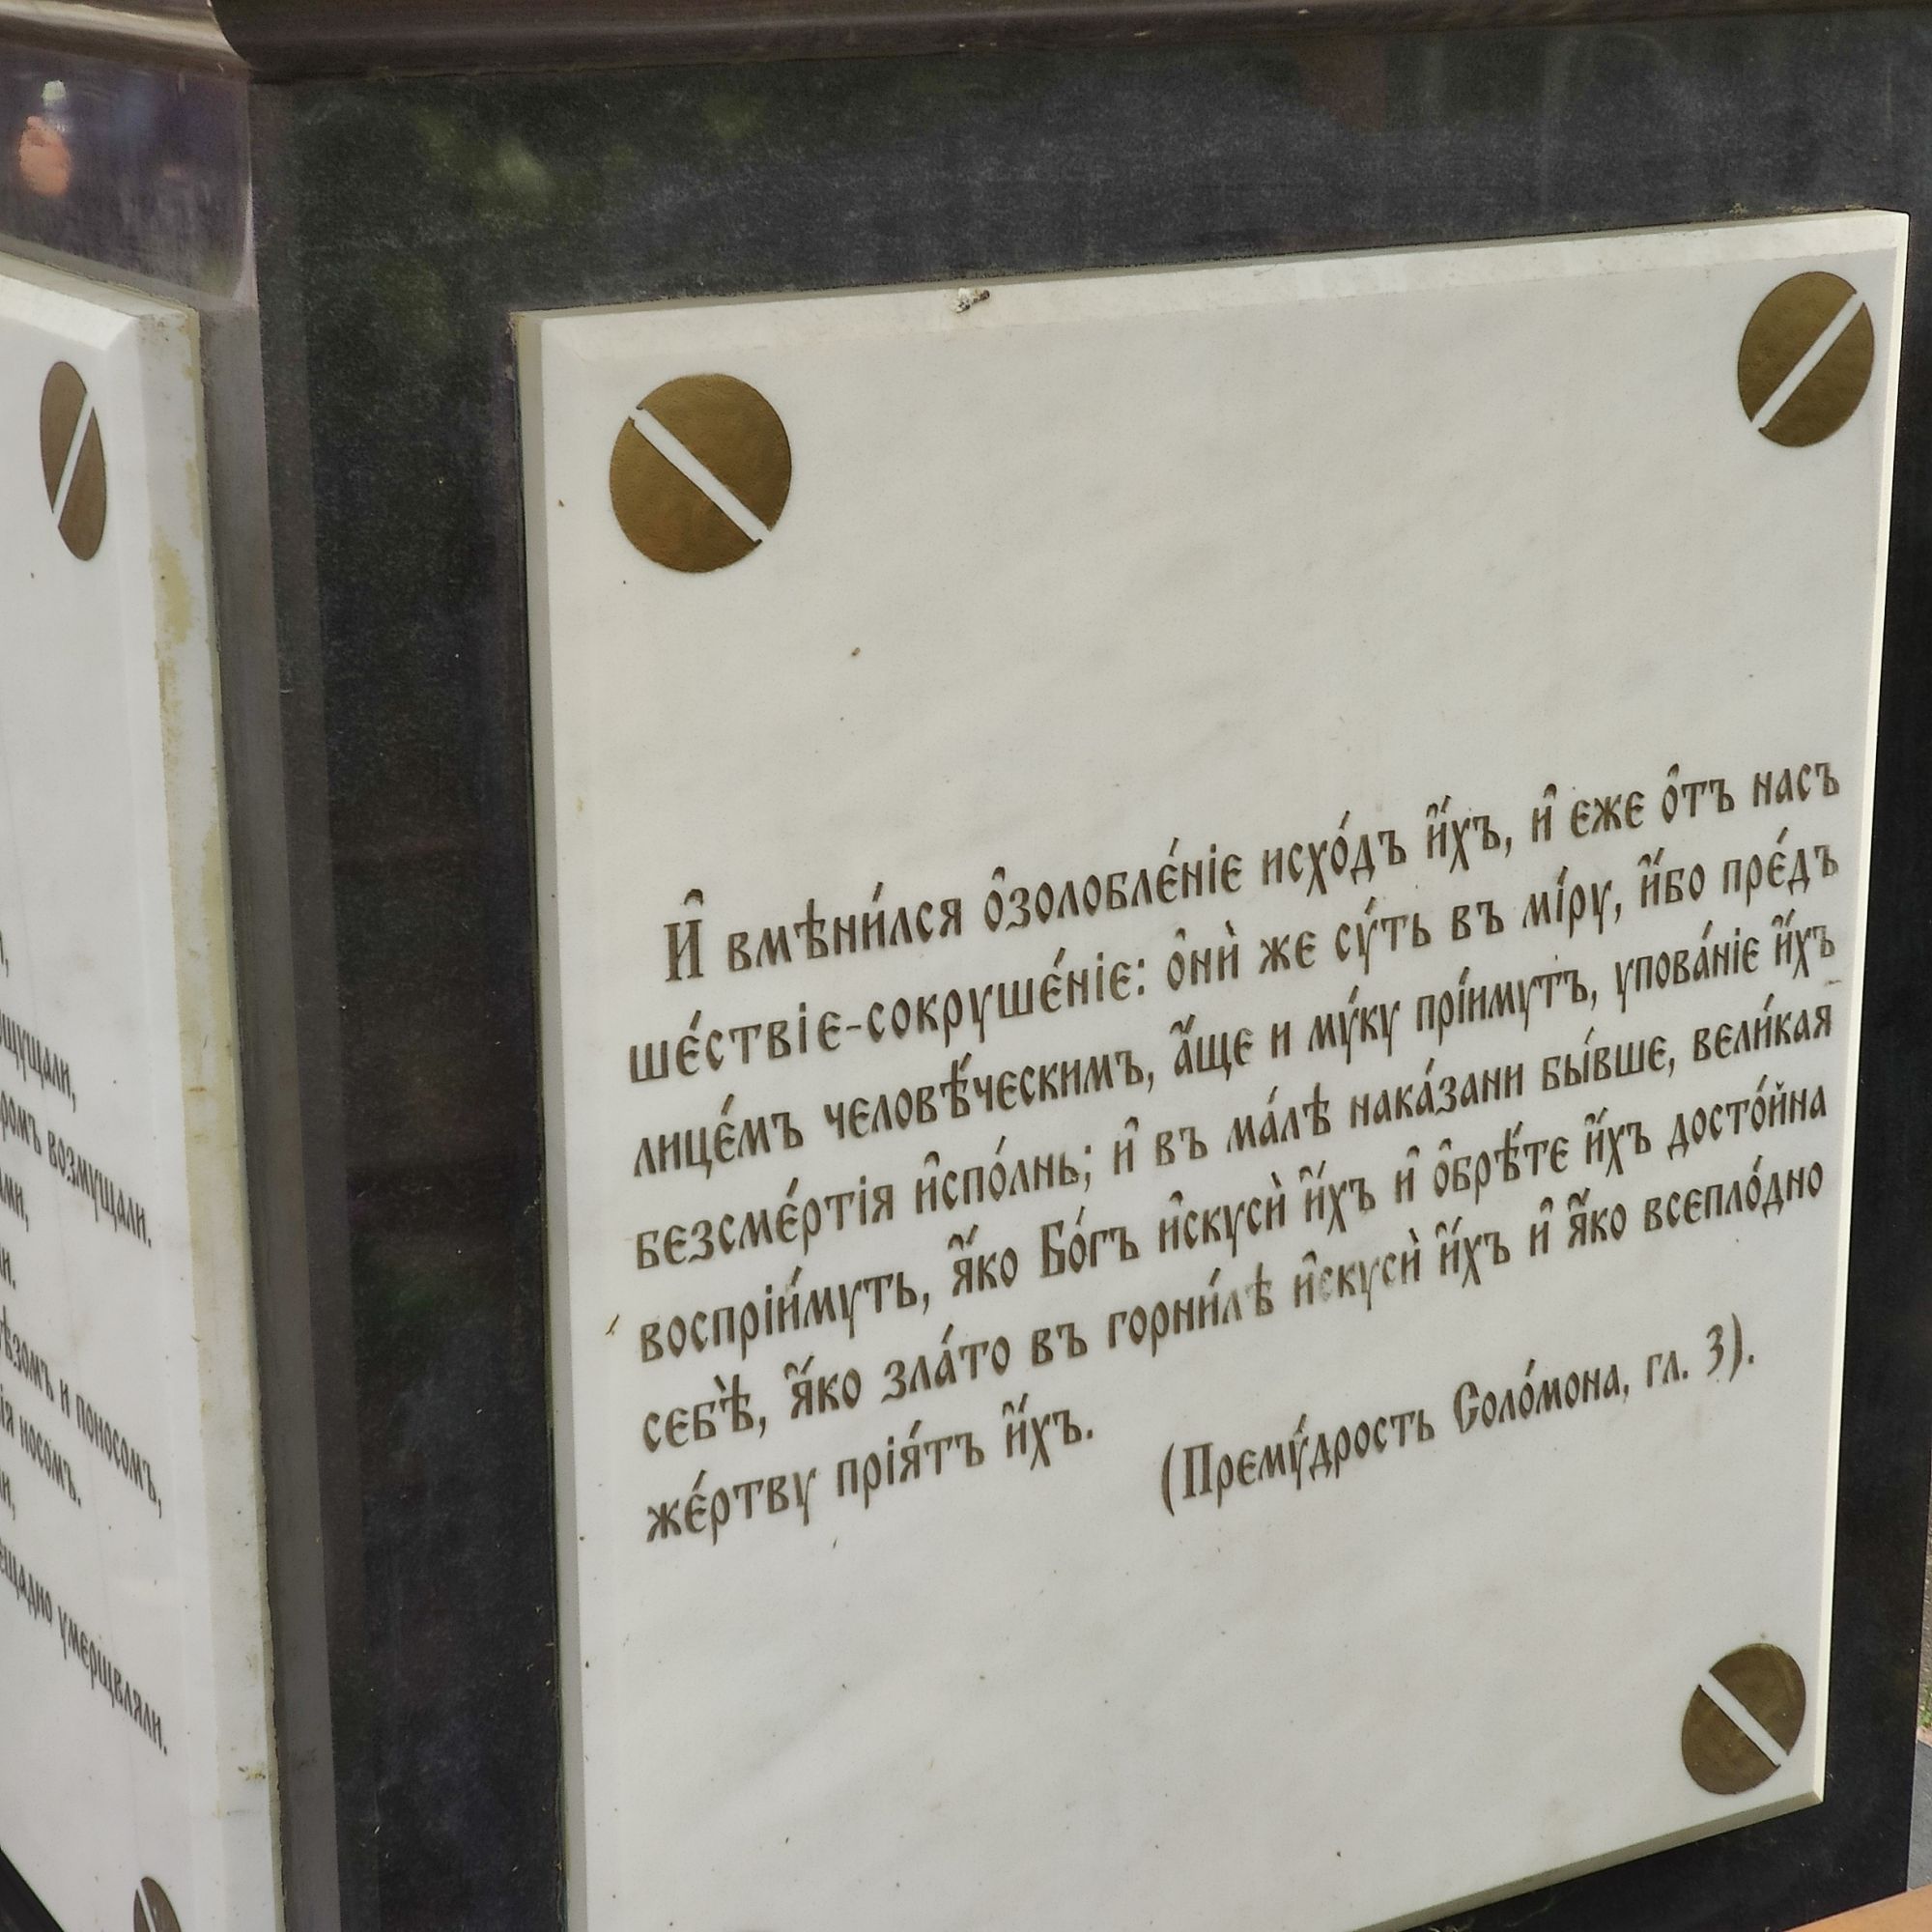 ,
ощущали,
ромъ возмущали.
ами,
ли.
ѣзомъ и поносомъ,
ія носомъ.
ли,
ещадно умерщвляли.
И҆ вмѣни́лся о҆золобле́ніе исхо́дъ и҆́хъ, и҆ еже о҆тъ насъ
ше́ствіе-сокруше́ніе: о҆нѝ же су́ть въ мі́ру, и҆́бо пре́дъ
лице́мъ человѣ́ческимъ, а҆́ще и му́ку прі́имутъ, упова́ніе и҆́хъ
безсме́ртія и҆спо́лнь; и҆ въ ма́лѣ нака́зани бы́вше, вели́кая
воспріи́муть, я҆́ко Бо́гъ и҆скусѝ и҆́хъ и҆ о҆брѣ́те и҆́хъ досто́йна
себѣ̀, я҆́ко зла́то въ горни́лѣ и҆скусѝ и҆́хъ и҆ я҆́ко всепло́дно
же́ртву прія́тъ и҆́хъ.
(Прему́дрость Соло́мона, гл. 3).